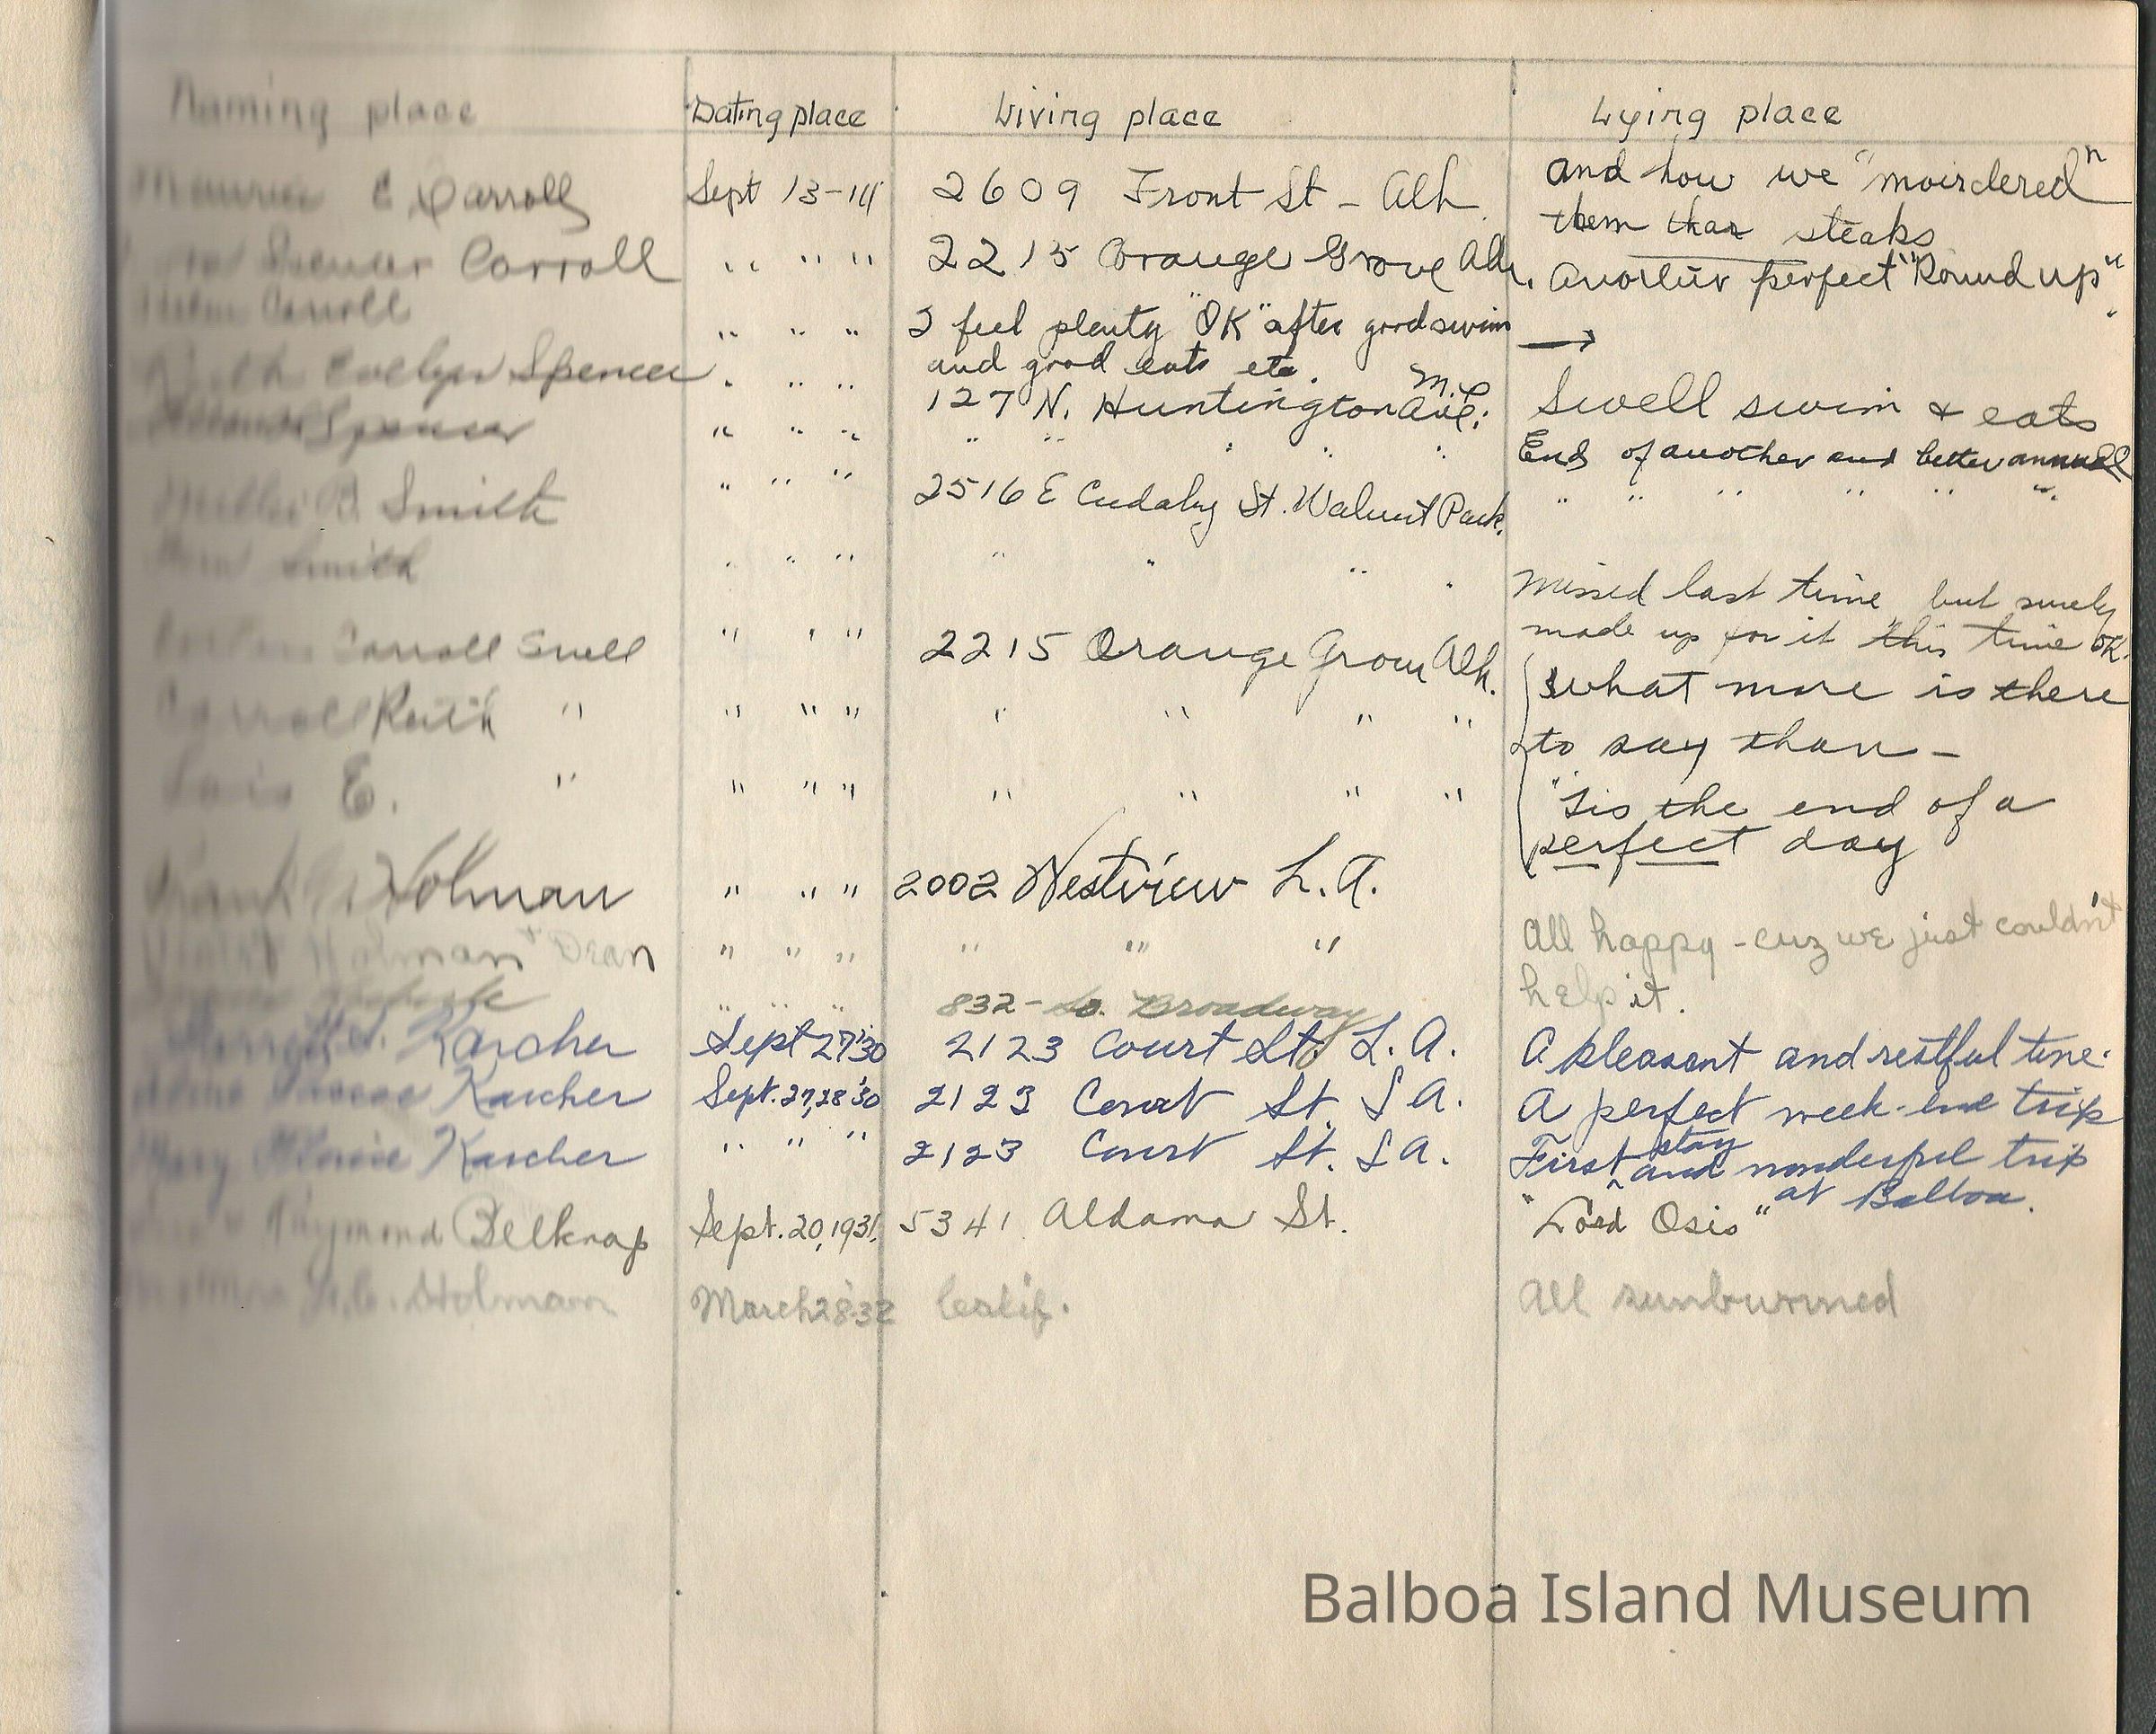 Naming place Dating place Living place Lying place
Maurice E Carroll Sept 13-14 2609 Front St - Alh. and how we "moirdered"
them thar steaks
Spencer Carroll " " " 2215 Orange Grove Alh. Another perfect "Round up"
Helen Carroll " " " I feel plenty "OK" after good swim →
and good eats etc.
Ruth Evelyn Spencer " " " 127 N. Huntington Ave. M.P. Swell swim & eats
Spencer " " " " " " " " End of another and better annual
Millie B. Smith " " " 2516 E Cudahy St. Walnut Park. " " " " " "
Smith " " " " " " "
Missed last time but surely
Carroll Snell " " " 2215 Orange Grove Alh. made up for it this time OK.
Carroll Ruth " " " " " " " " what more is there
to say than -
Lois E. " " " " " " " " "Tis the end of a
perfect day
Frank Holman " " " 2002 Westview L.A.
Holman + Dean " " " " " " All happy - cuz we just couldn't
help it.
" " " 832 - So. Broadway
Karcher Sept 27 '30 2123 Court St L.A. A pleasant and restful time.
Karcher Sept. 27, 28 '30 2123 Court St. L A. A perfect week-end trip
Mary Karcher " " " 2123 Court St. L A. First stay and wonderful trip
at Balboa.
Raymond Belknap Sept. 20, 1931. 5341 Aldama St. "Lord Osis"
Holman March 28-32 Calif. All sunburned
Balboa Island Museum